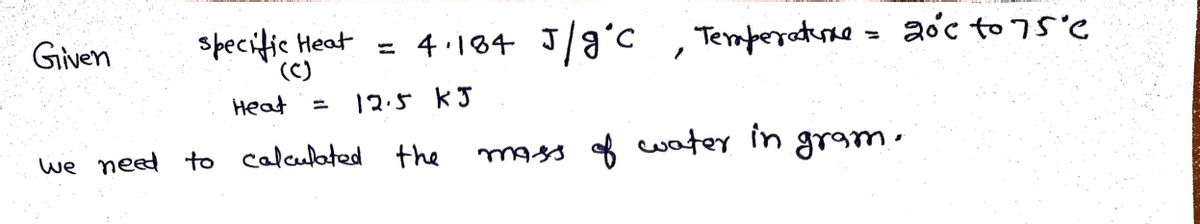 Given specific Heat = 4.184 J/g°C , Temperature = 20°c to 75°C
(C)
Heat = 12.5 kJ
we need to calculated the mass of water in gram.